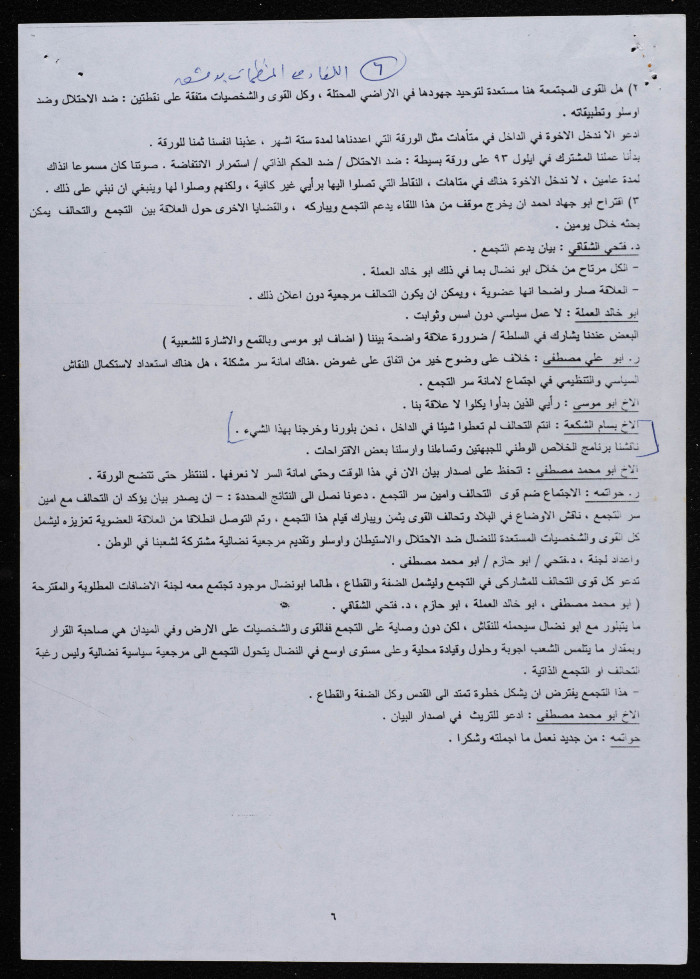 ٦ اللقاء مع المنظمات بدمشق
٢) هل القوى المجتمعة هنا مستعدة لتوحيد جهودها في الاراضي المحتلة ، وكل القوى والشخصيات متفقة على نقطتين : ضد الاحتلال وضد
اوسلو وتطبيقاته .
ادعو الا ندخل الاخوة في الداخل في متاهات مثل الورقة التي اعددناها لمدة ستة اشهر ، عذبنا انفسنا ثمنا للورقة .
بدأنا عملنا المشترك في ايلول ٩٣ على ورقة بسيطة : ضد الاحتلال / ضد الحكم الذاتي / استمرار الانتفاضة . صوتنا كان مسموعا انذاك
لمدة عامين ، لا ندخل الاخوة هناك في متاهات ، النقاط التي تصلوا اليها برأيي غير كافية ، ولكنهم وصلوا لها وينبغي ان نبني على ذلك .
٣) اقتراح ابو جهاد احمد ان يخرج موقف من هذا اللقاء يدعم التجمع ويباركه ، والقضايا الاخرى حول العلاقة بين التجمع والتحالف يمكن
بحثه خلال يومين .
د. فتحي الشقاقي : بيان يدعم التجمع .
- الكل مرتاح من خلال ابو نضال بما في ذلك ابو خالد العملة .
- العلاقة صار واضحا انها عضوية ، ويمكن ان يكون التحالف مرجعية دون اعلان ذلك .
ابو خالد العملة : لا عمل سياسي دون اسس وثوابت .
البعض عندنا يشارك في السلطة / ضرورة علاقة واضحة بيننا ( اضاف ابو موسى وبالقمع والاشارة للشعبية )
ر. ابو علي مصطفى : خلاف على وضوح خير من اتفاق على غموض .هناك امانة سر مشكلة ، هل هناك استعداد لاستكمال النقاش
السياسي والتنظيمي في اجتماع لامانة سر التجمع .
الاخ ابو موسى : رأيي الذين بدأوا يكلوا لا علاقة بنا .
الاخ بسام الشكعة : انتم التحالف لم تعطوا شيئا في الداخل ، نحن بلورنا وخرجنا بهذا الشيء .
ناقشنا برنامج الخلاص الوطني للجبهتين وتساءلنا وارسلنا بعض الاقتراحات .
الاخ ابو محمد مصطفى : اتحفظ على اصدار بيان الان في هذا الوقت وحتى امانة السر لا نعرفها . لننتظر حتى تتضح الورقة .
ر. حواتمه : الاجتماع ضم قوى التحالف وامين سر التجمع . دعونا نصل الى النتائج المحددة : - ان يصدر بيان يؤكد ان التحالف مع امين
سر التجمع ، ناقش الاوضاع في البلاد وتحالف القوى يثمن ويبارك قيام هذا التجمع ، وتم التوصل انطلاقا من العلاقة العضوية تعزيزه ليشمل
كل القوى والشخصيات المستعدة للنضال ضد الاحتلال والاستيطان واوسلو وتقديم مرجعية نضالية مشتركة لشعبنا في الوطن .
واعداد لجنة ، د.فتحي / ابو حازم / ابو محمد مصطفى .
تدعو كل قوى التحالف للمشاركى في التجمع وليشمل الضفة والقطاع ، طالما ابونضال موجود تجتمع معه لجنة الاضافات المطلوبة والمقترحة
( ابو محمد مصطفى ، ابو خالد العملة ، ابو حازم ، د. فتحي الشقاقي .
ما يتبلور مع ابو نضال سيحمله للنقاش ، لكن دون وصاية على التجمع فالقوى والشخصيات على الارض وفي الميدان هي صاحبة القرار
وبمقدار ما يتلمس الشعب اجوبة وحلول وقيادة محلية وعلى مستوى اوسع في النضال يتحول التجمع الى مرجعية سياسية نضالية وليس رغبة
التحالف او التجمع الذاتية .
- هذا التجمع يفترض ان يشكل خطوة تمتد الى القدس وكل الضفة والقطاع .
الاخ ابو محمد مصطفى : ادعو للتريث في اصدار البيان .
حواتمه : من جديد نعمل ما اجملته وشكرا .
٦